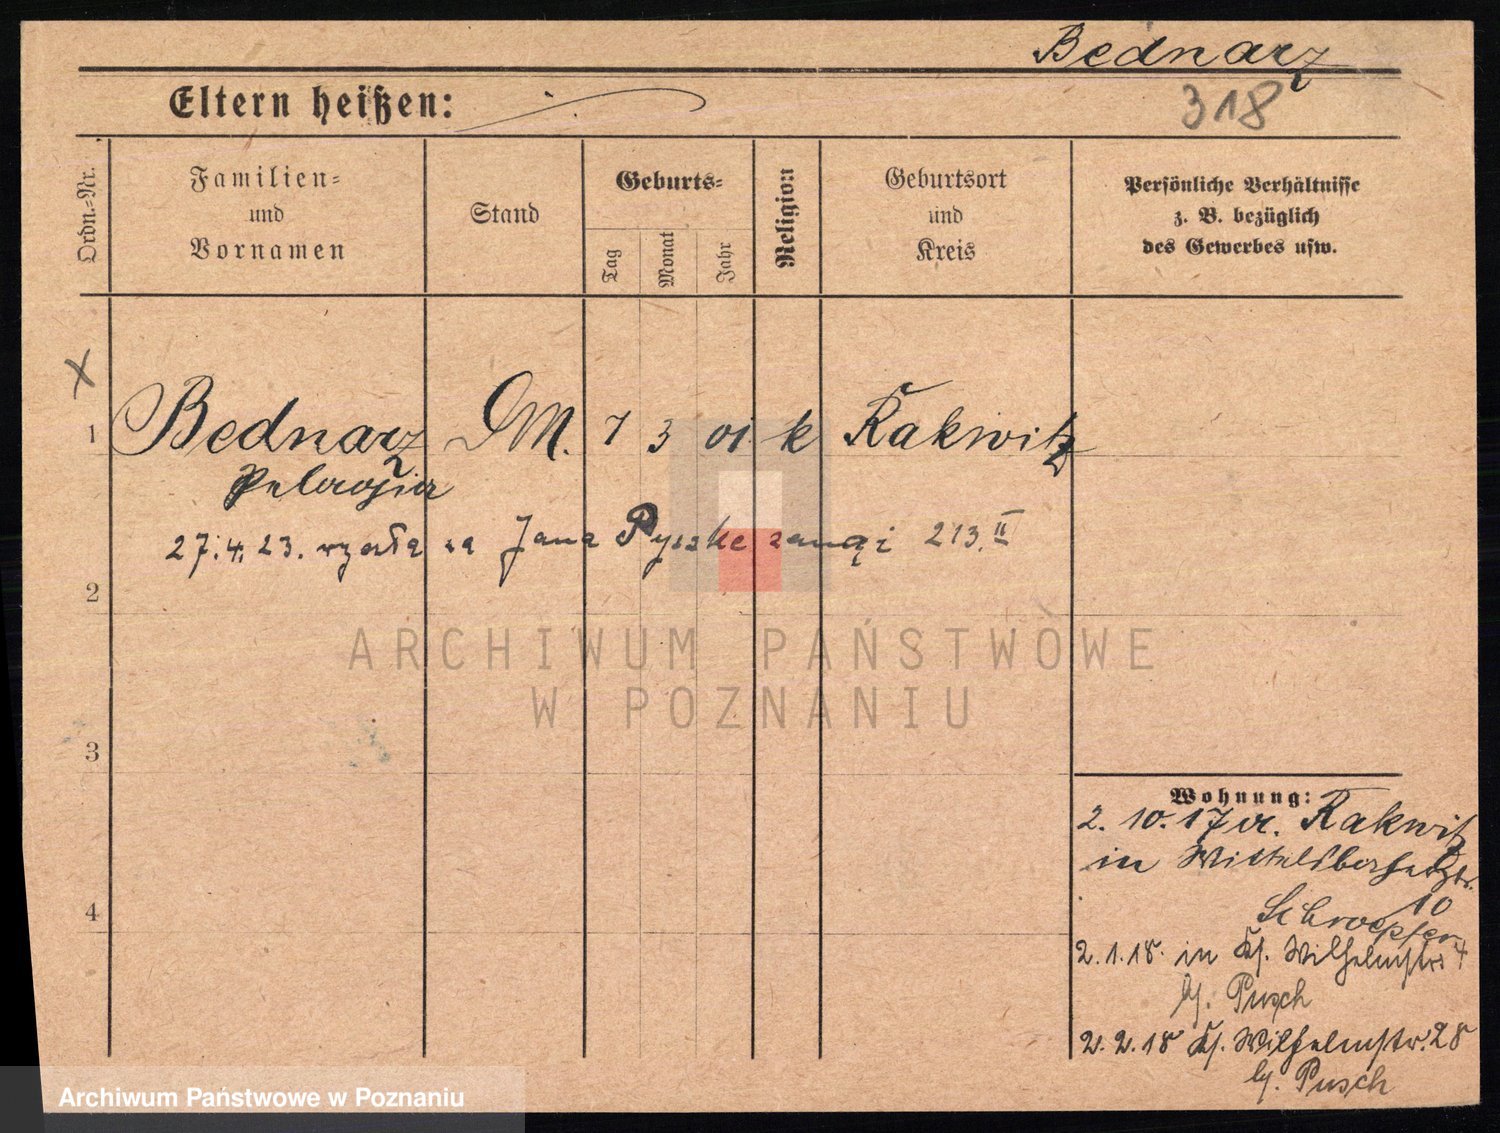 Bednarz
Eltern heißen:
318
Ordn.-Nr.
Familien-
und
Vornamen
Stand
Geburts-
Tag
Monat
Jahr
Religion
Geburtsort
und
Kreis
Persönliche Verhältnisse
z. B. bezüglich
des Gewerbes usw.
X
1 Bednarz DM. 7 3 01. k Rakwitz
Pelagia
27.4.23. wyszła za Jana Pyszke zamąż 213.II
2
ARCHIWUM PAŃSTWOWE
W POZNANIU
3
Wohnung:
2. 10. 17 Rakwitz
in Wittelsbacherstr.
10
4
Schroepfer
2.1.18. in Ks. Wilhelmstr. 4
bj. Pusch
2.2.18 Ks. Wilhelmstr. 28
bj. Pusch
Archiwum Państwowe w Poznaniu